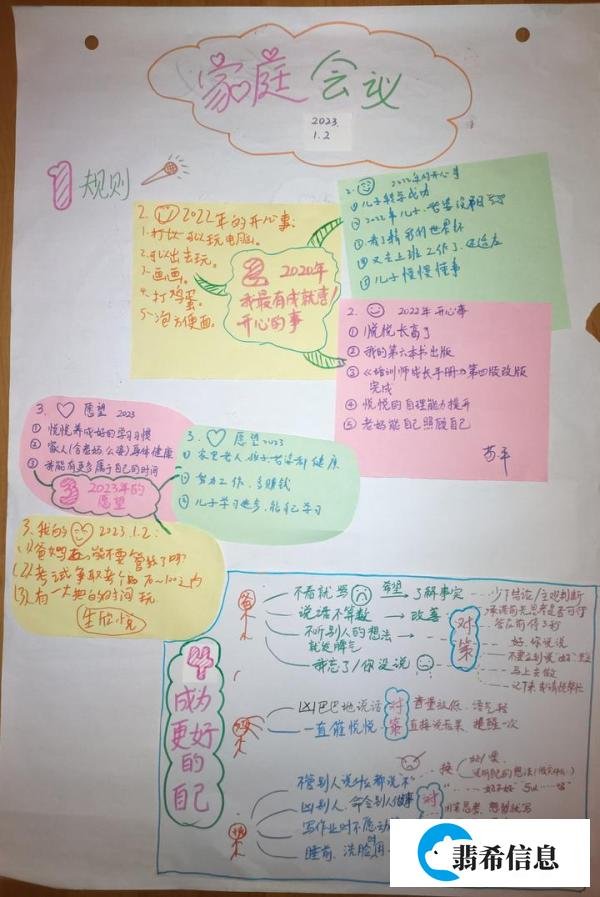 家庭会议
2023.
1.2
1 规则
2. 2022年的开心事:
1.打
可以玩电脑。
2.可以出去玩。
3.画画。
4.打鸡蛋。
5.泡方便面。
2 2020年
我最有成就喜/
开心的事
2. 2022年的开心事
① 儿子转学成功
② 2022年儿子、老婆没阳
④ 又去上班工作了,
⑤ 儿子慢慢懂事
2. 2022年开心事
① 悦悦长高了
② 我的第六本书出版
③ 《培训师成长手册》第四版改版
完成
④ 悦悦的自理能力提升
⑤ 老妈能自己照顾自己
3. 愿望 2023
① 悦悦养成好的学习习惯
② 家人(含老妈公婆)身体健康
③ 我能有更多属于自己的时间
3 2023年的
愿望
3. 愿望2023
① 家里老人、孩子、老婆和健康
② 努力工作,多赚钱
③ 儿子学习进步,能自己学习
3.我的 2023.1.2:
(1)爸妈
能不要管我了吗?
(2)考试争取考个
(3)有一大把的时间玩
4
成为
更好
的
自己
爸
不看就骂 希望→了解事实
少下结论/主观判断
说话不算数→改善
承诺前先思考是否可行
答应有得
不听别人的想法
就发脾气
好,你说说
我忘了/你没说
马上去做
对策
妈
凶巴巴地说话 对策 音量放低、语气轻
一直催悦悦 直接说后果,提醒一次
不管别人说什么都说"不"
凶别人,命令别人做事
写作业时不愿动
睡前、洗脸
对
翡希信息